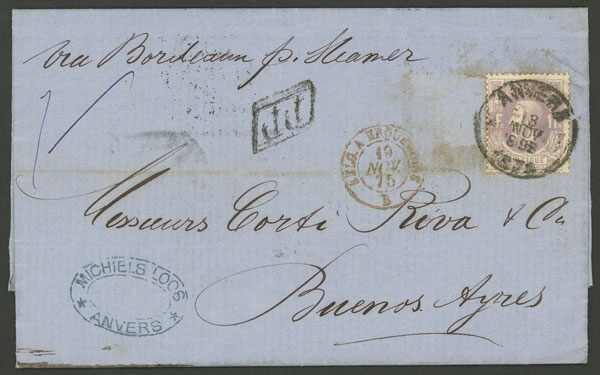 via Bordeaux p. Steamer
PP
ANVERS
18
NOV
1875
19
NOV.
75
B
Messieurs Corti Riva & Cie
Buenos Ayres
MICHIELS LOOS
ANVERS